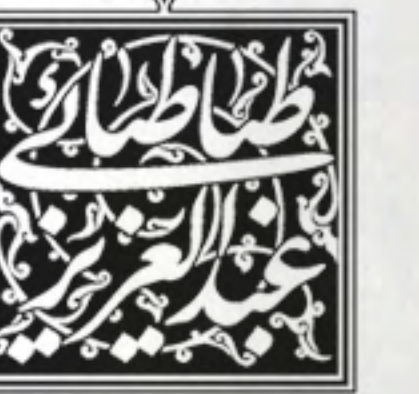 طباطبائی
عبدالعزیز